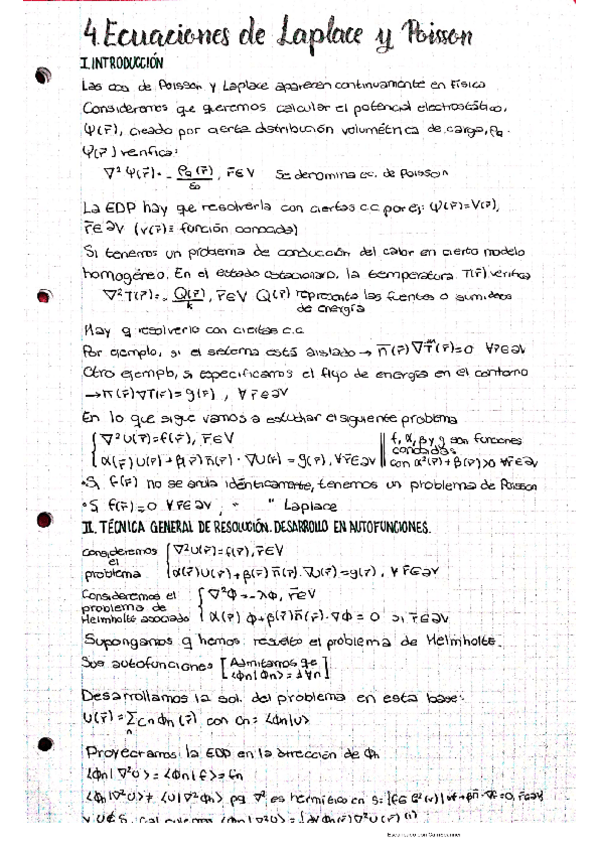 4. Ecuaciones de Laplace y Poisson
I. INTRODUCCIÓN
Las ecs de Poisson y Laplace aparecen continuamente en Física
Consideremos que queremos calcular el potencial electrostático,
Ψ(r̄), creado por cierta distribución volumétrica de carga, ρq.
Ψ(r̄) verifica:
∇²Ψ(r̄) = - ρq(r̄)/ε₀, r̄∈V Se denomina ec. de Poisson
La EDP hay que resolverla con ciertas c.c por ej: Ψ(r̄)=V(r̄),
r̄∈∂V (V(r̄)≡ función conocida)
Si tenemos un problema de conducción del calor en cierto modelo
homogéneo. En el estado estacionario, la temperatura T(r̄) verifica
∇²T(r̄)= - Q(r̄)/k, r̄∈V Q(r̄) representa las fuentes o sumideros
de energía
Hay q resolverlo con ciertas c.c
Por ejemplo, si el sistema está aislado → n̄(r̄)∇T(r̄)=0 ∀r̄∈∂V
Otro ejemplo, si especificamos el flujo de energía en el contorno
→ n̄(r̄)∇T(r̄)=g(r̄), ∀r̄∈∂V
En lo que sigue vamos a estudiar el siguiente problema
∇²U(r̄)=f(r̄), r̄∈V f, α, β y g son funciones
conocidas
α(r̄)U(r̄)+β(r̄)n̄(r̄)·∇U(r̄)=g(r̄), ∀r̄∈∂V con α²(r̄)+β(r̄)>0 ∀r̄∈∂V
·Si f(r̄) no se anula idénticamente, tenemos un problema de Poisson
·Si f(r̄)=0 ∀r̄∈∂V, " " Laplace
II. TÉCNICA GENERAL DE RESOLUCIÓN. DESARROLLO EN AUTOFUNCIONES.
Consideremos ∇²U(r̄)=f(r̄), r̄∈V
el
problema α(r̄)U(r̄)+β(r̄)n̄(r̄)·∇U(r̄)=g(r̄), ∀r̄∈∂V
Consideremos el ∇²Φ=-λΦ, r̄∈V
problema de
Helmholtz asociado α(r̄)Φ+β(r̄)n̄(r̄)·∇Φ=0 si r̄∈∂V
Supongamos q hemos resuelto el problema de Helmholtz.
Sus autofunciones [Admitamos que
Desarrollamos la sol. del problema en esta base:
U(r̄)=∑ Cn Φn(r̄) con Cn=⟨Φn|U⟩
n
Proyectamos la EDP en la dirección de Φn
⟨Φn|∇²U⟩=⟨Φn|f⟩=fn